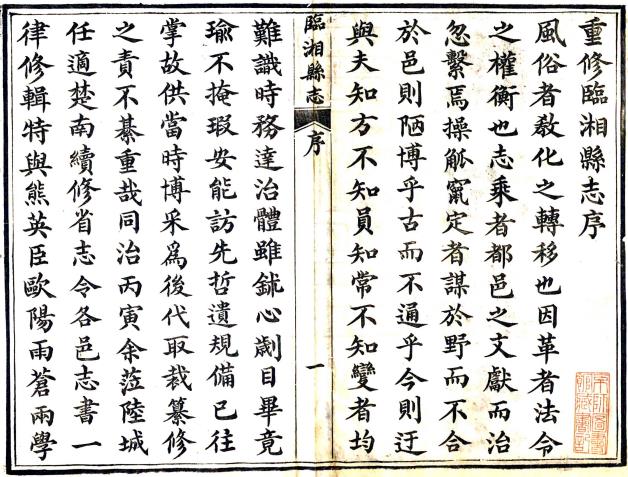 重修臨湘縣志序
風俗者敎化之轉移也因革者法令
之權衡也志乘者都邑之文獻而治
忽繫焉操觚竄定者謀於野而不合
於邑則陋博乎古而不通乎今則迂
與夫知方不知員知常不知變者均
臨湘縣志
序
一
難識時務達治體雖鉥心劌目畢竟
瑜不掩瑕安能訪先哲遺規備已往
掌故供當時博采爲後代取裁纂修
之責不綦重哉同治丙寅余蒞陸城
任適楚南續修省志令各邑志書一
律修輯特與熊英臣歐陽雨蒼兩學